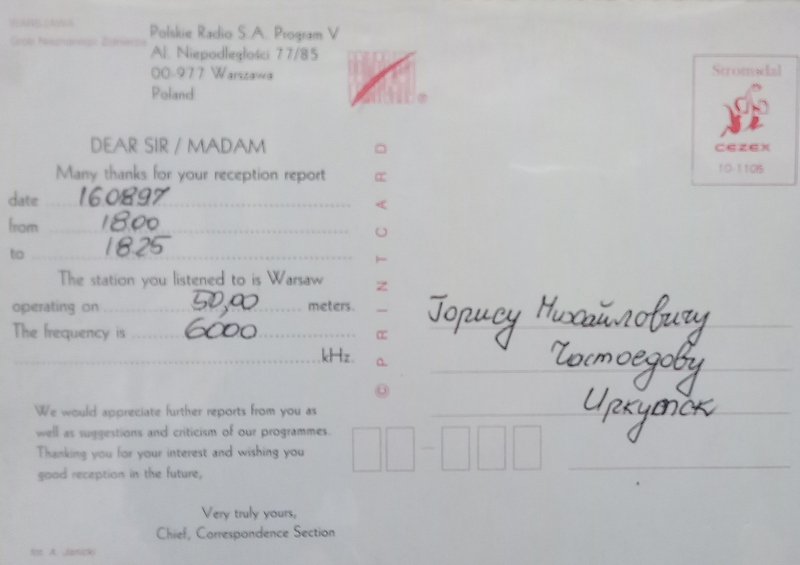 WARSZAWA
Grób Nieznanego Żołnierza
Polskie Radio S.A. Program V
Al. Niepodległości 77/85
00-977 Warszawa
Poland
DEAR SIR / MADAM
Many thanks for your reception report
date 160897
from 18.00
to 1825
The station you listened to is Warsaw
operating on 50,00 meters.
The frequency is 6000
kHz.
We would appreciate further reports from you as
well as suggestions and criticism of our programmes.
Thanking you for your interest and wishing you
good reception in the future,
Very truly yours,
Chief, Correspondence Section
fot. A. Janicki
© PRINTCARD
Stromsdal
CEZEX
10-1106
Горису Михайловичу
Частоедову
Иркутск